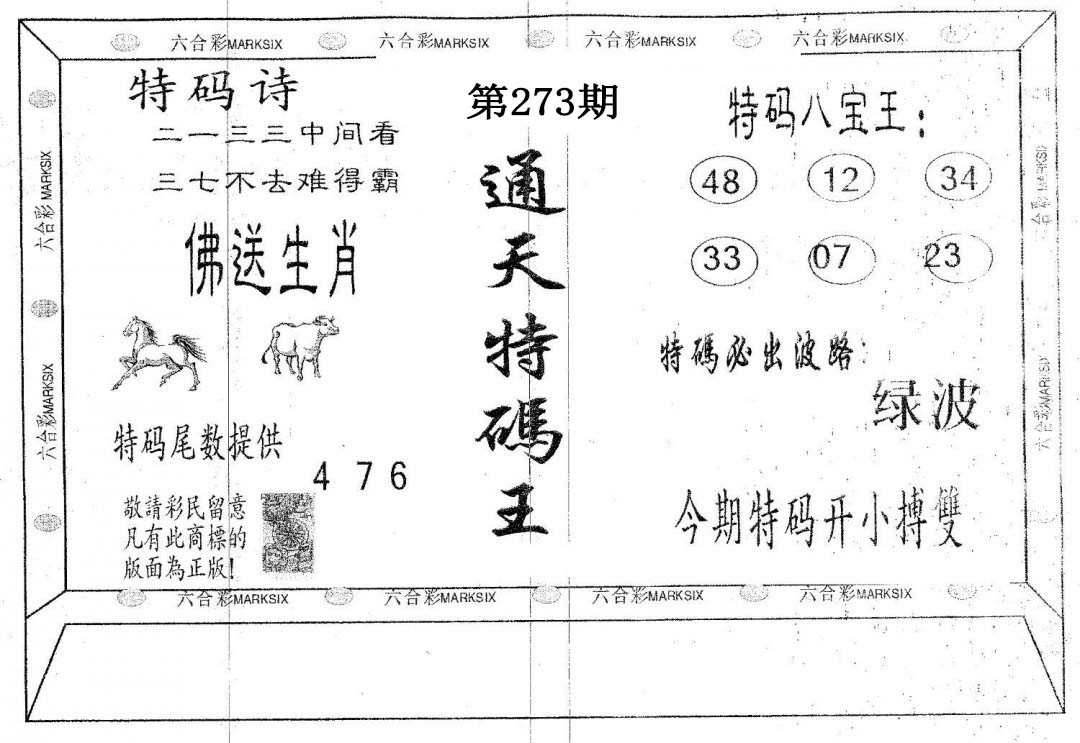 六合彩MARKSIX 六合彩MARKSIX 六合彩MARKSIX 六合彩MARKSIX
第273期
特码诗
二一三三中间看
三七不去难得霸
佛送生肖
特码尾数提供
4 7 6
敬請彩民留意
凡有此商標的
版面為正版!
通天特碼王
特码八宝王:
48 12 34
33 07 23
特碼必出波路:
绿波
今期特码开小搏雙
六合彩MARKSIX
六合彩MARKSIX
六合彩MARKSIX
六合彩MARKSIX
六合彩MARKSIX 六合彩MARKSIX 六合彩MARKSIX 六合彩MARKSIX